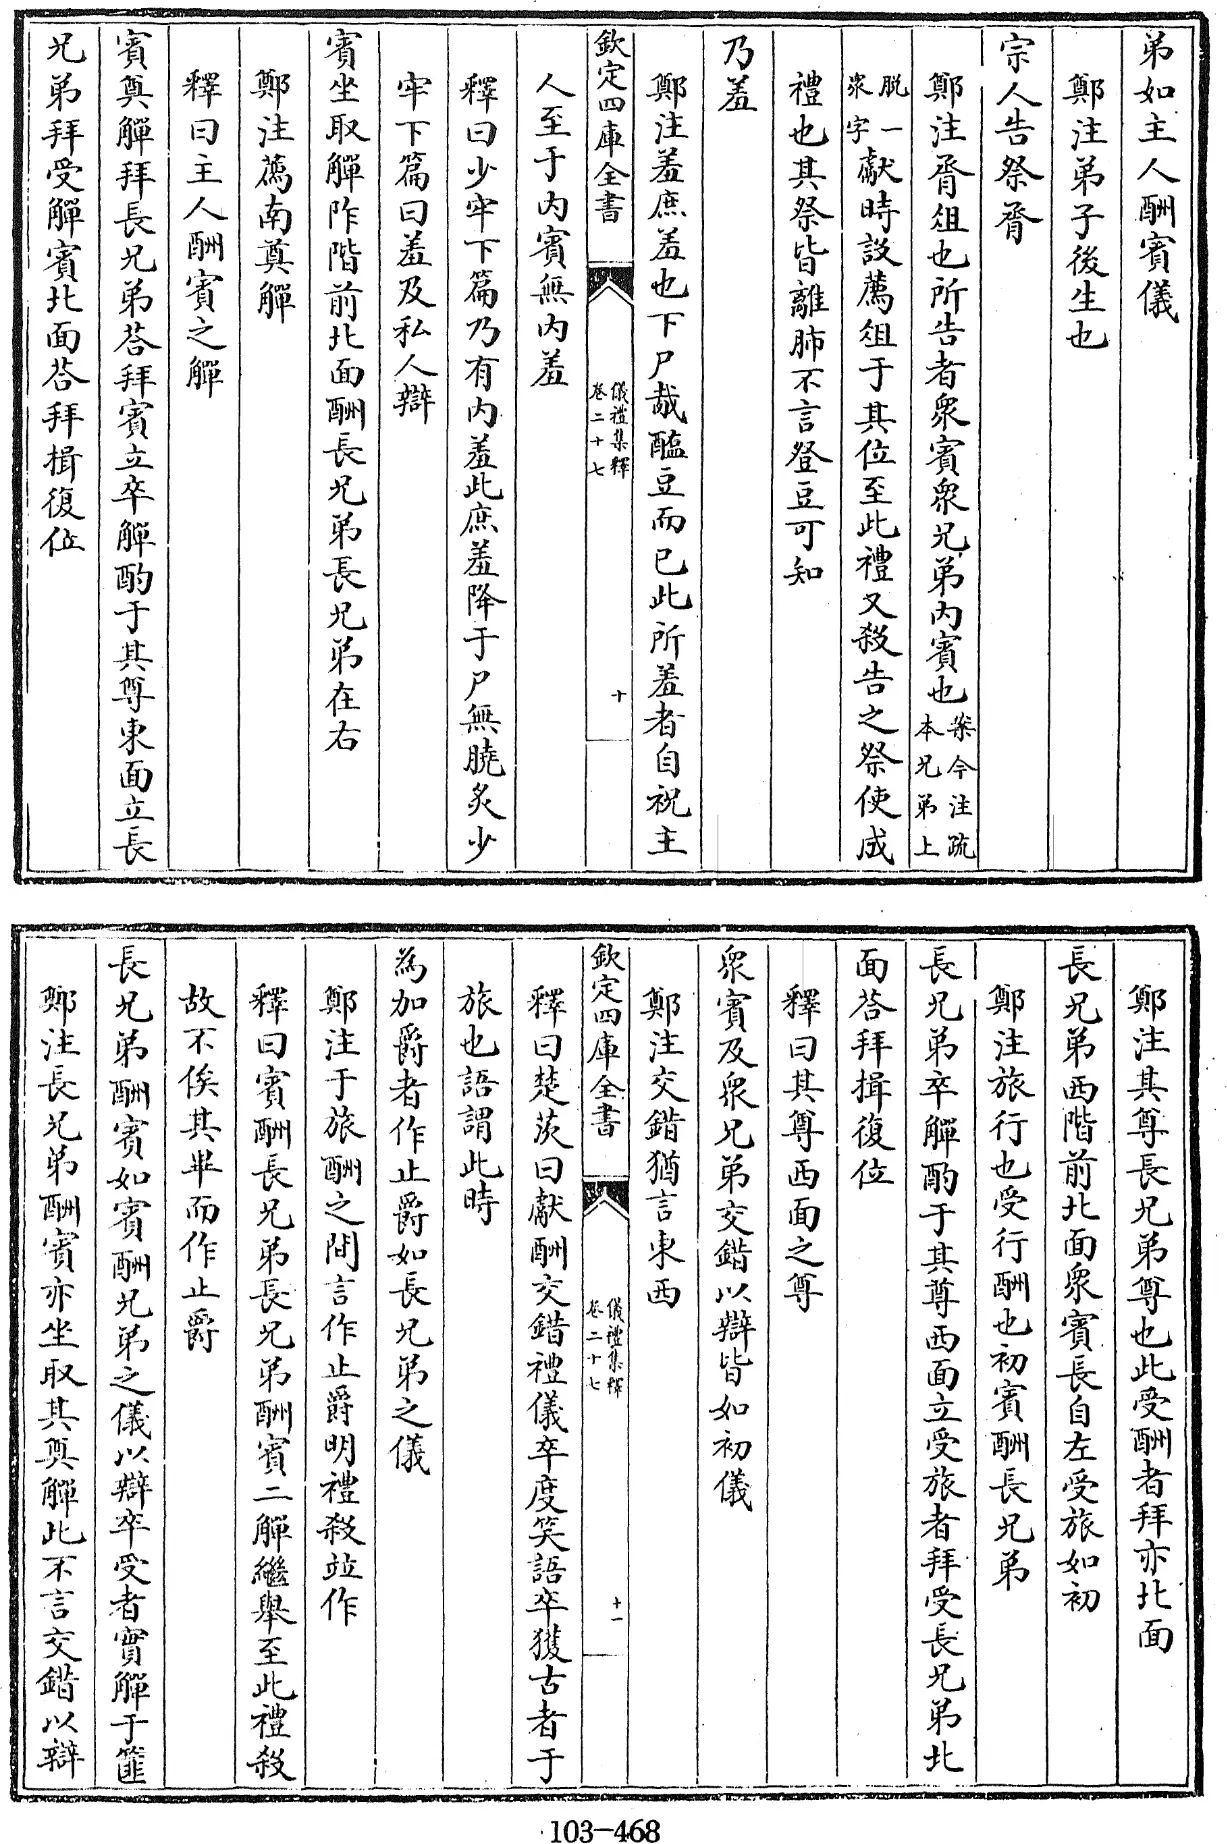 弟如主人酬賓儀
鄭注弟子後生也
宗人告祭脀
鄭注脀俎也所告者衆賓衆兄弟内賓也案今注疏本兄弟上
脱一衆字獻時設薦俎于其位至此禮又殺告之祭使成
禮也其祭皆離肺不言登豆可知
乃羞
鄭注羞庶羞也下尸胾醢豆而已此所羞者自祝主
欽定四庫全書
儀禮集釋
卷二十七
十
人至于内賓無内羞
釋曰少牢下篇乃有内羞此庶羞降于尸無膮炙少
牢下篇曰羞及私人辯
賓坐取觶阼階前北面酬長兄弟長兄弟在右
鄭注薦南奠觶
釋曰主人酬賓之觶
賓奠觶拜長兄弟荅拜賓立卒觶酌于其尊東面立長
兄弟拜受觶賓北面荅拜揖復位
鄭注其尊長兄弟尊也此受酬者拜亦北面
長兄弟西階前北面衆賓長自左受旅如初
鄭注旅行也受行酬也初賓酬長兄弟
長兄弟卒觶酌于其尊西面立受旅者拜受長兄弟北
面荅拜揖復位
釋曰其尊西面之尊
衆賓及衆兄弟交錯以辯皆如初儀
鄭注交錯猶言東西
欽定四庫全書
儀禮集釋
卷二十七
十一
釋曰楚茨曰獻酬交錯禮儀卒度笑語卒獲古者于
旅也語謂此時
為加爵者作止爵如長兄弟之儀
鄭注于旅酬之間言作止爵明禮殺竝作
釋曰賓酬長兄弟長兄弟酬賓二觶繼舉至此禮殺
故不俟其畢而作止爵
長兄弟酬賓如賓酬兄弟之儀以辯卒受者實觶于篚
鄭注長兄弟酬賓亦坐取其奠觶此不言交錯以辯
103-468